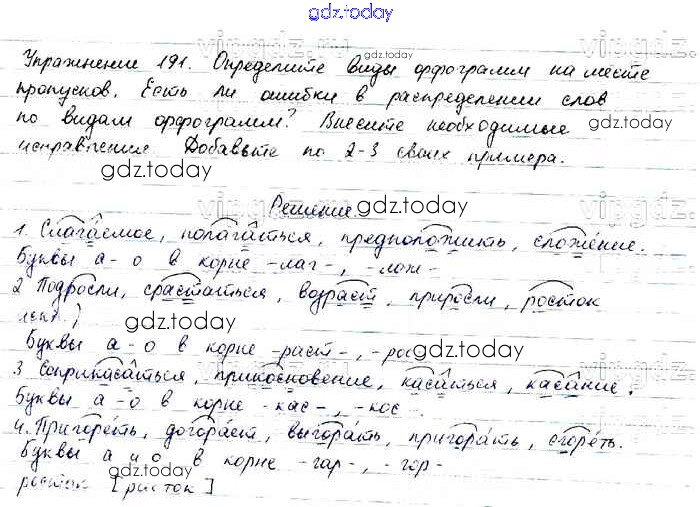 gdz.today
Упражнение 191. Определите виды орфограмм на месте
пропусков. Есть ли ошибки в распределении слов
по видам орфограмм? Внесите необходимые
исправления Добавьте по 2-3 своих примера.
gdz.today
gdz.today
gdz.today
Решение.
gdz.today
1. Слагаемое, полагаться, предположить, сложение.
Буквы а-о в корне -лаг-, -лож-
2 Подросли, срастаться, возраст, приросли, росток
gdz.today
Буквы а-о в корне -раст-, -рос
gdz.today
3 Соприкасаться, прикосновение, касаться, касание.
Буквы а-о в корне -кас-, -кос
4. Пригореть, догорает, выгорать, пригорать, сгореть.
Буквы а и о в корне -гар-, -гор-
gdz.today
росток [росток]